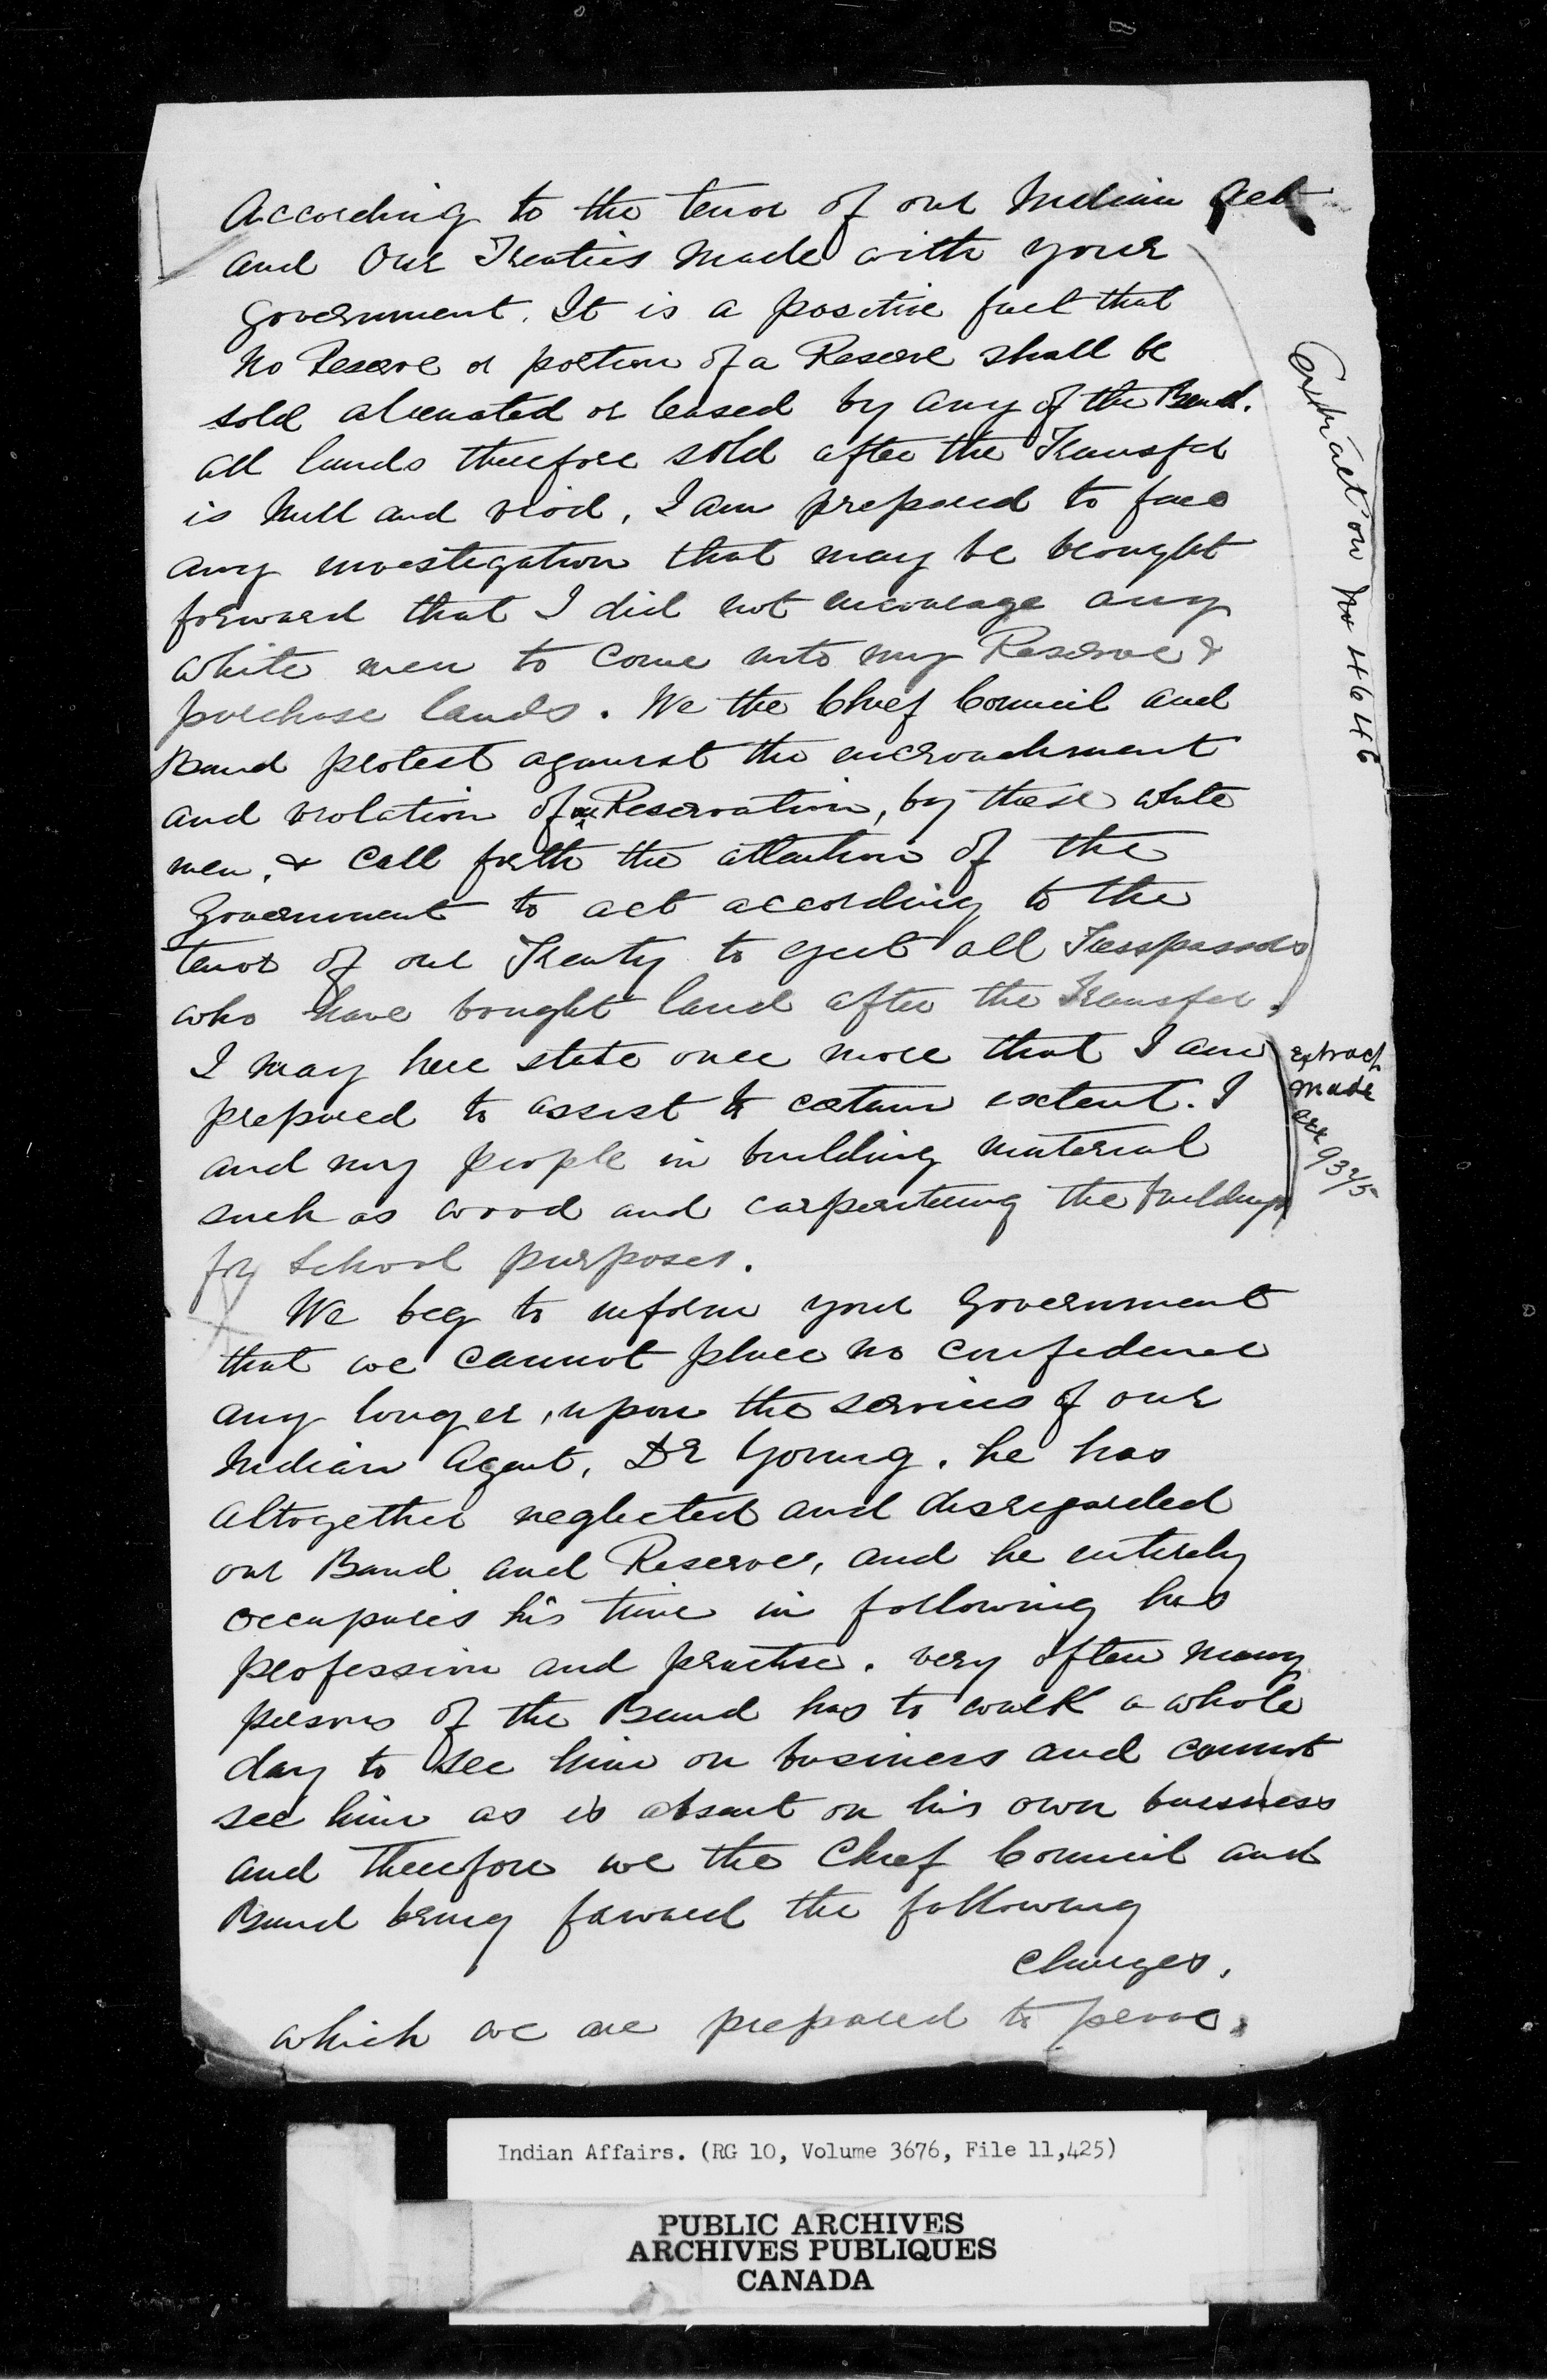 According to the tenor of our Indian Act
and Our Treaties made with your
Government. It is a positive fact that
No Reserve or portion of a Reserve shall be
sold alienated or leased by any of the Band.
all lands therefore sold after the Transfer
is Null and viod, I am prepared to face
any investigation that may be brought
forward that I did not encourage any
white men to come into my Reserve &
purchase lands. We the Chief Council and
Band protest against the encroachment
and violation of our Reservation, by these white
men, & call forth the attention of the
Government to act according to the
tenor of our Treaty to eject all Tresspassers
who have bought land after the Transfer.
I may here state once more that I am
prepared to assist to certain extent. I
and my people in building material
such as wood and carpentering the buildings
for School purposes.
We beg to inform your Government
that we cannot place no confidence
any longer, upon the services of our
Indian Agent, Dr Young. he has
altogether neglected and disregarded
our Band and Reserve, and he entirely
occupaies his time in following his
profession and practise. very often many
persons of the Band has to walk a whole
day to see him on business and cannot
see him as is absent on his own buisness
and Therefore we the Chief Council and
Band bring forward the following
Charges,
which we are prepared to prove.
Extract on No 4646
extract
made
932/5
Indian Affairs. (RG 10, Volume 3676, File 11,425)
PUBLIC ARCHIVES
ARCHIVES PUBLIQUES
CANADA